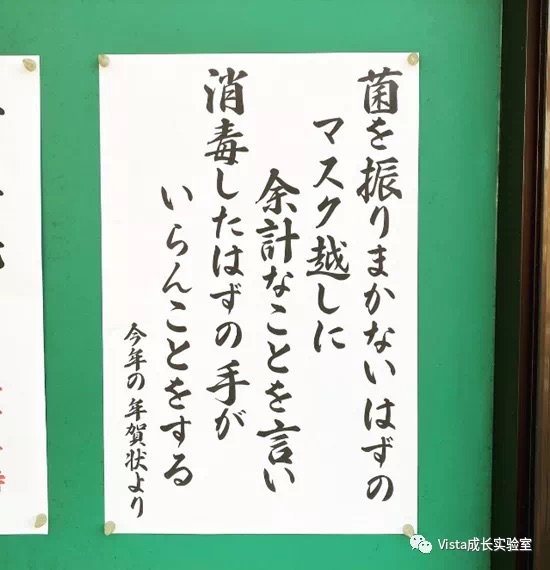 菌を振りまかないはずの
マスク越しに
余計なことを言い
消毒したはずの手が
いらんことをする
今年の年賀状より
Vista成长实验室